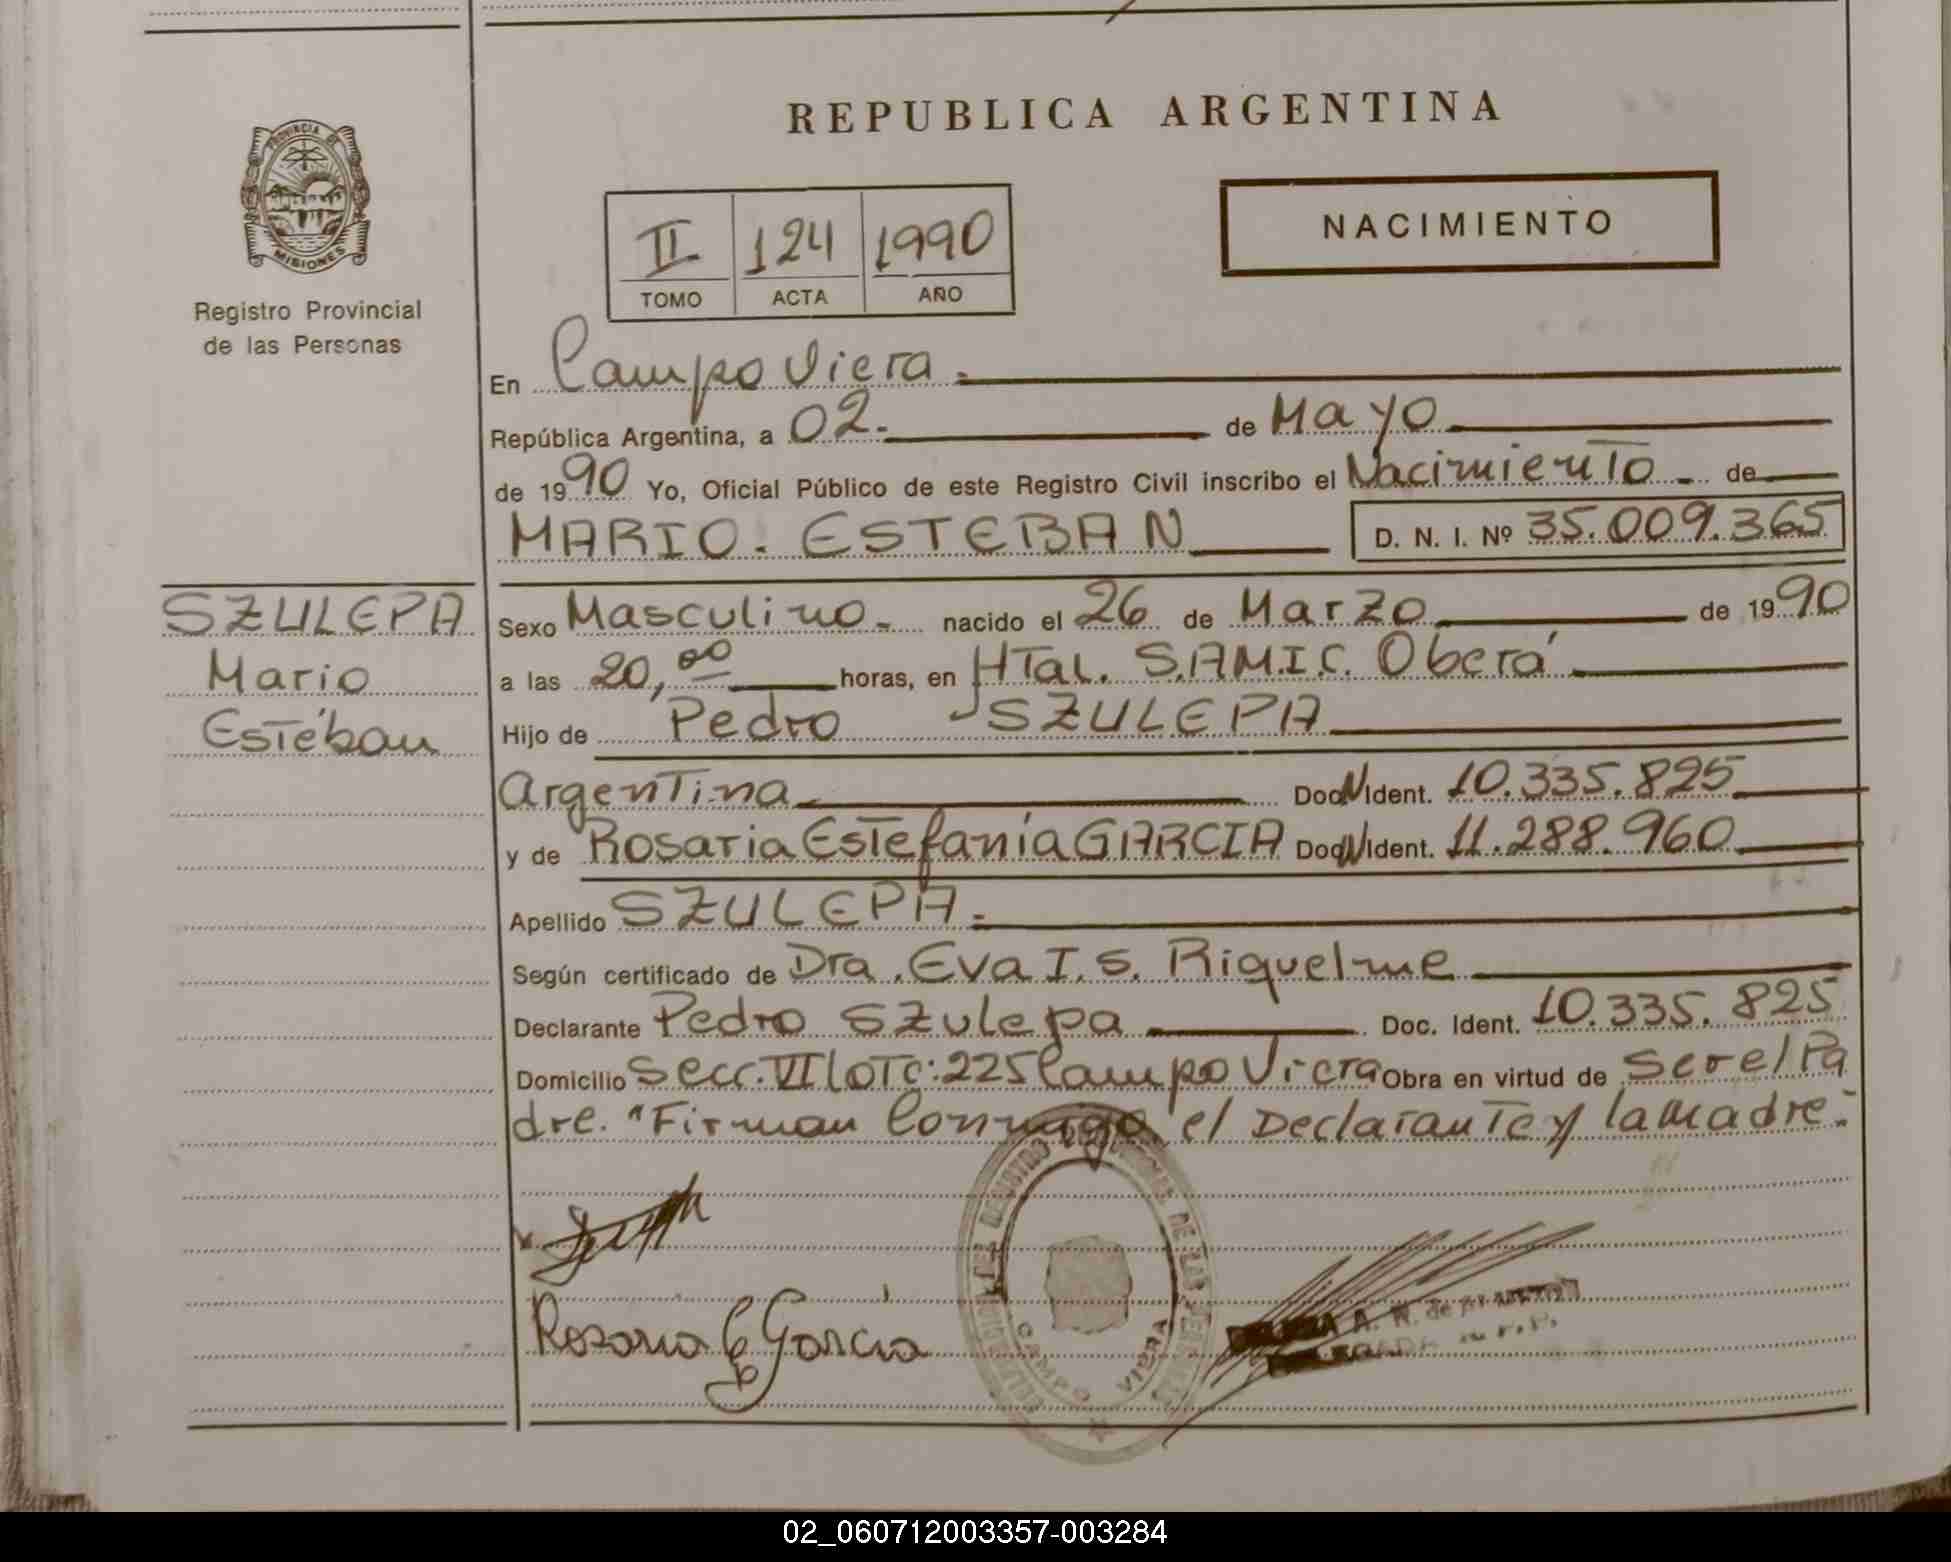 REPUBLICA ARGENTINA
PROVINCIA DE
MISIONES
Registro Provincial
de las Personas
II 124 1990
TOMO ACTA AÑO
NACIMIENTO
En Campo Viera.
República Argentina, a 02. de Mayo
de 1990 Yo, Oficial Público de este Registro Civil inscribo el Nacimiento de
MARIO. ESTEBAN D. N. I. Nº 35.009.365
SZULEPA
Mario
Estéban
Sexo Masculino. nacido el 26 de Marzo de 1990
a las 20,00 horas, en HTal. S.A.M.I.C. Oberá
Hijo de Pedro SZULEPA
Argentina Doc N Ident. 10.335.825
y de Rosaria Estefanía GARCIA Doc N Ident. 11.288.960
Apellido SZULEPA.
Según certificado de Dra. Eva I. S. Riquelme
Declarante Pedro Szulepa Doc. Ident. 10.335.825
Domicilio Secc. VII Lote: 225 Campo Viera Obra en virtud de ser el Pa
dre. "Firman Conmigo el Declarante y la madre.
Rosaria E García
CAMPO VIERA
02_060712003357-003284